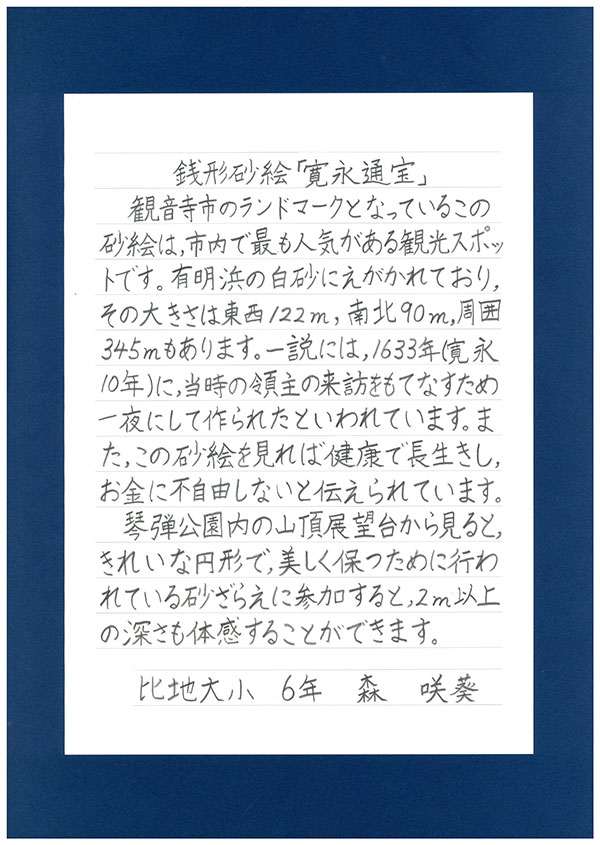 銭形砂絵「寛永通宝」
観音寺市のランドマークとなっているこの
砂絵は,市内で最も人気がある観光スポッ
トです。有明浜の白砂にえがかれており,
その大きさは東西122m, 南北90m,周囲
345mもあります。一説には,1633年(寛永
10年)に,当時の領主の来訪をもてなすため
一夜にして作られたといわれています。ま
た,この砂絵を見れば健康で長生きし,
お金に不自由しないと伝えられています。
琴弾公園内の山頂展望台から見ると,
きれいな円形で,美しく保つために行わ
れている砂ざらえに参加すると,2m以上
の深さも体感することができます。
比地大小 6年 森 咲葵